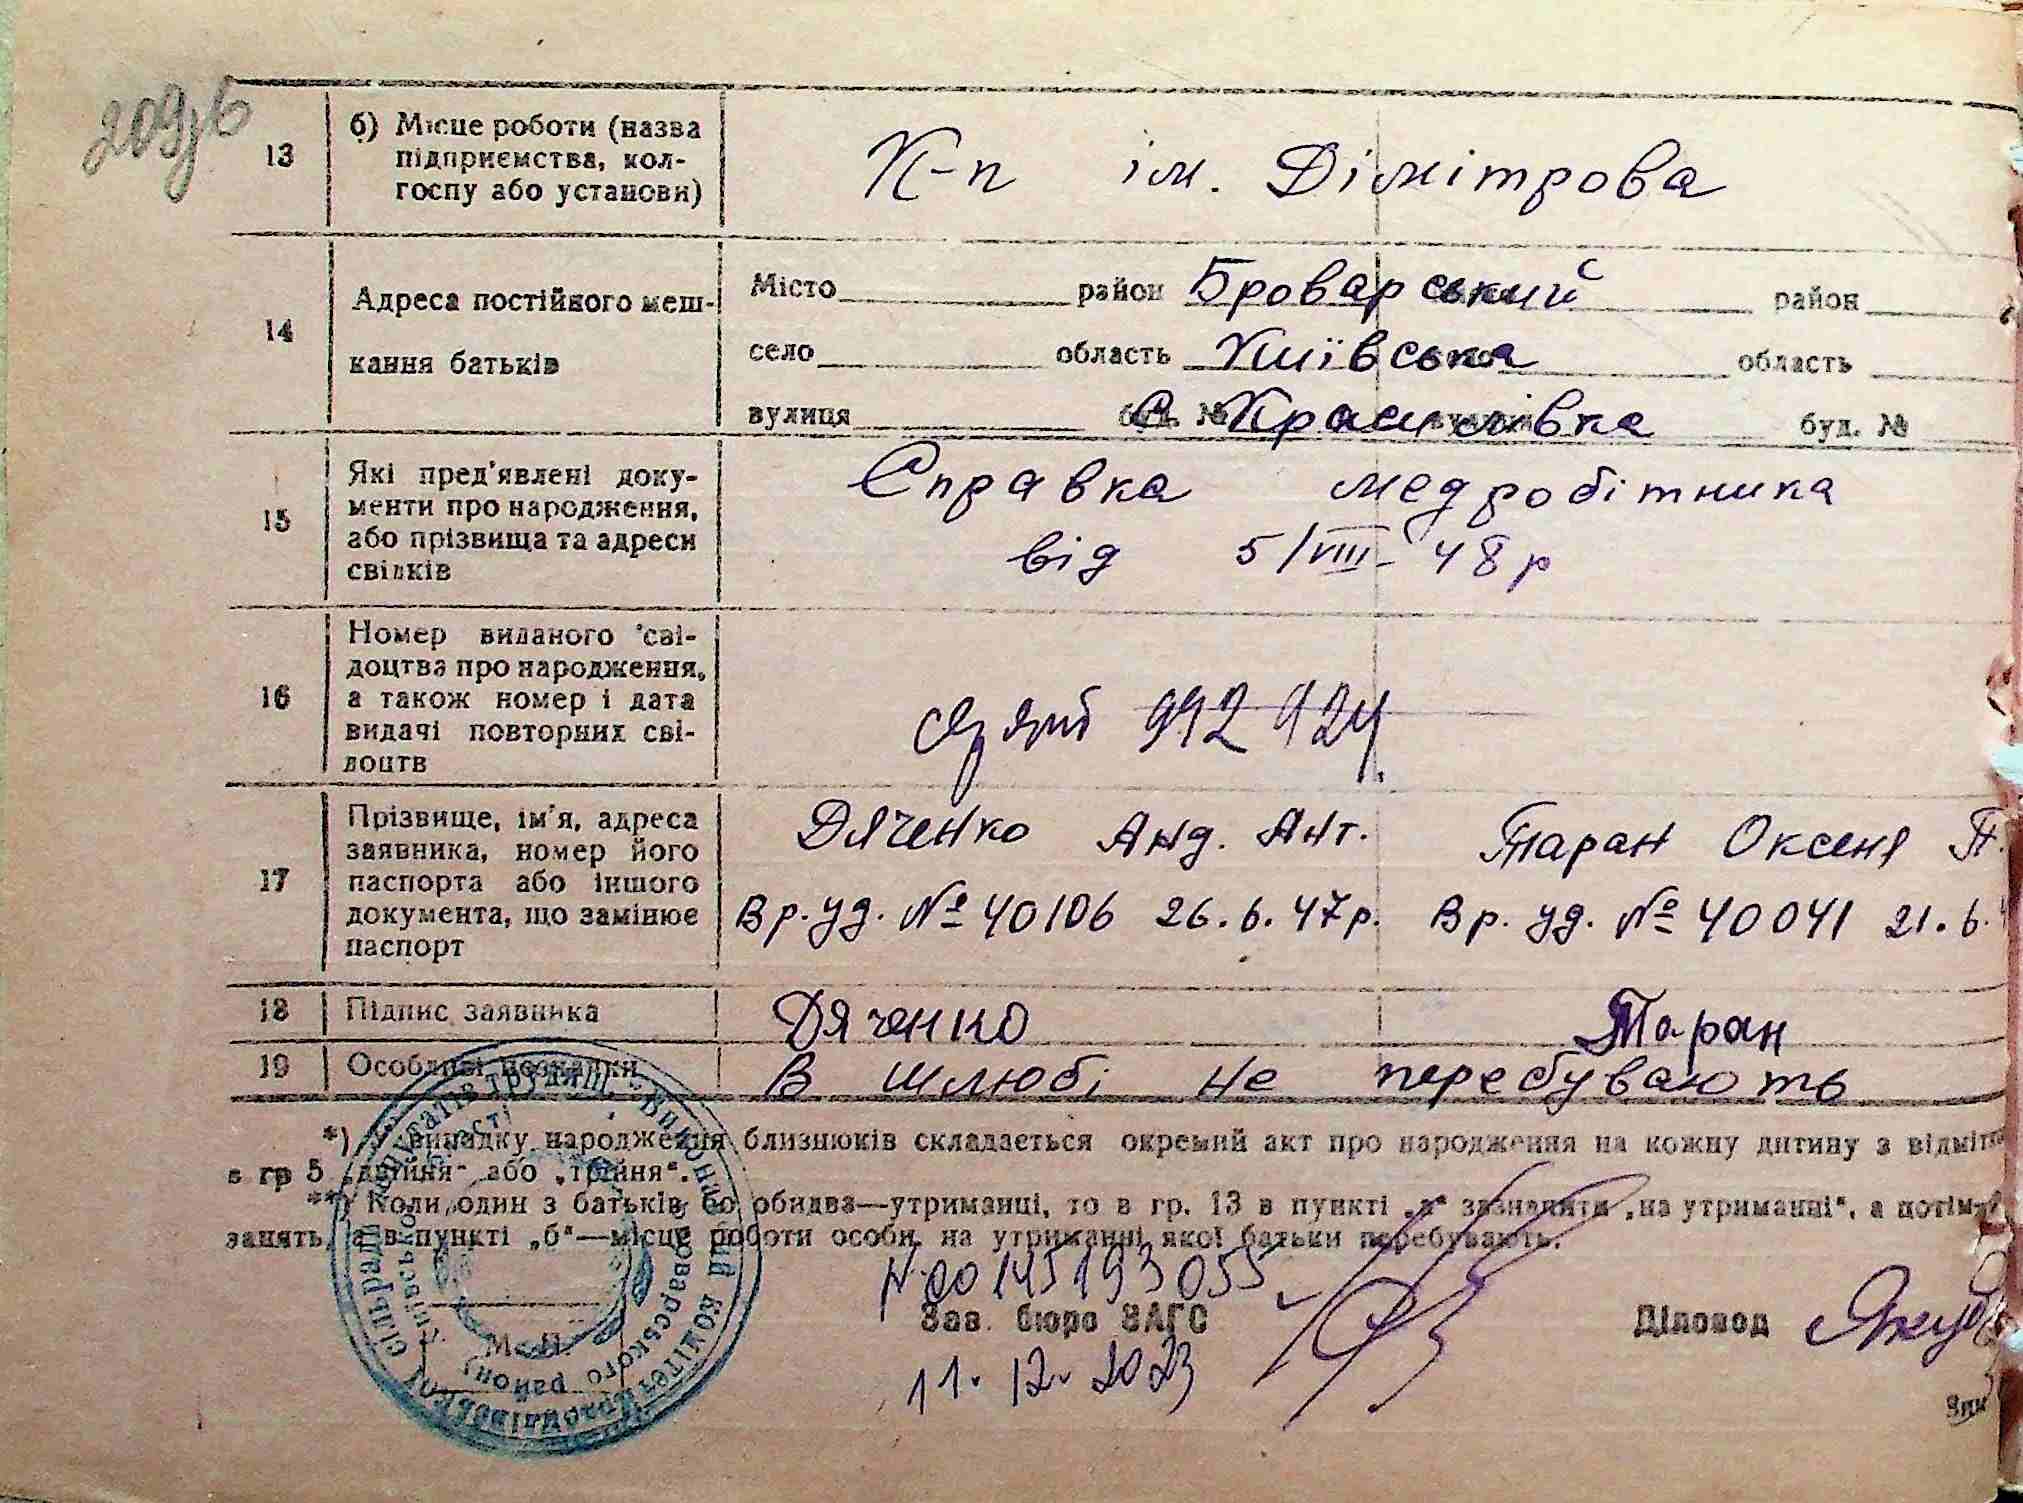 209зв
13
б) Місце роботи (назва
підприємства, кол-
госпу або установи)
К-п ім. Дімітрова
14
Адреса постійного меш-
кання батьків
Місто район Броварський район
село область Київська область
вулиця буд. № с. Красилівка буд. №
15
Які пред'явлені доку-
менти про народження,
або прізвища та адреси
свідків
Справка медробітника
від 5/VIII-48р
16
Номер виданого сві-
доцтва про народження,
а також номер і дата
видачі повторних сві-
доцтв
992924
17
Прізвище, ім'я, адреса
заявника, номер його
паспорта або іншого
документа, що замінює
паспорт
Дяченко Анд. Ант.
Вр. уд. № 40106 26.6.47р.
Таран Оксеня П.
Вр. уд. № 40041 21.6.
18
Підпис заявника
Дяченко
Таран
19
Особливі позначки
В шлюбі не перебувають
*) У випадку народження близнюків складається окремий акт про народження на кожну дитину з відміт
в гр 5 „двійня" або „трійня".
**) Коли один з батьків бо обидва—утриманці, то в гр. 13 в пункті „а" зазначити „на утриманні", а потім
занять, а в пункті „б"—місце роботи особи, на утриманні якої батьки перебувають.
N 00145193055
Зав. бюро ЗАГС
Діловод
11.12.2023
М. П.